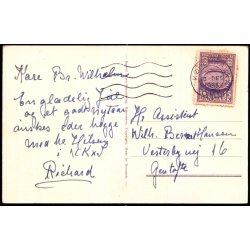 Kære Br. Wilhelm
En glædelig Jul
og et godt nytaar
ønskes eder begge
med br. Hilsen
Richard
Hr. Assistent
Wilh. Hansen
Vestersøvej 16
Gentofte